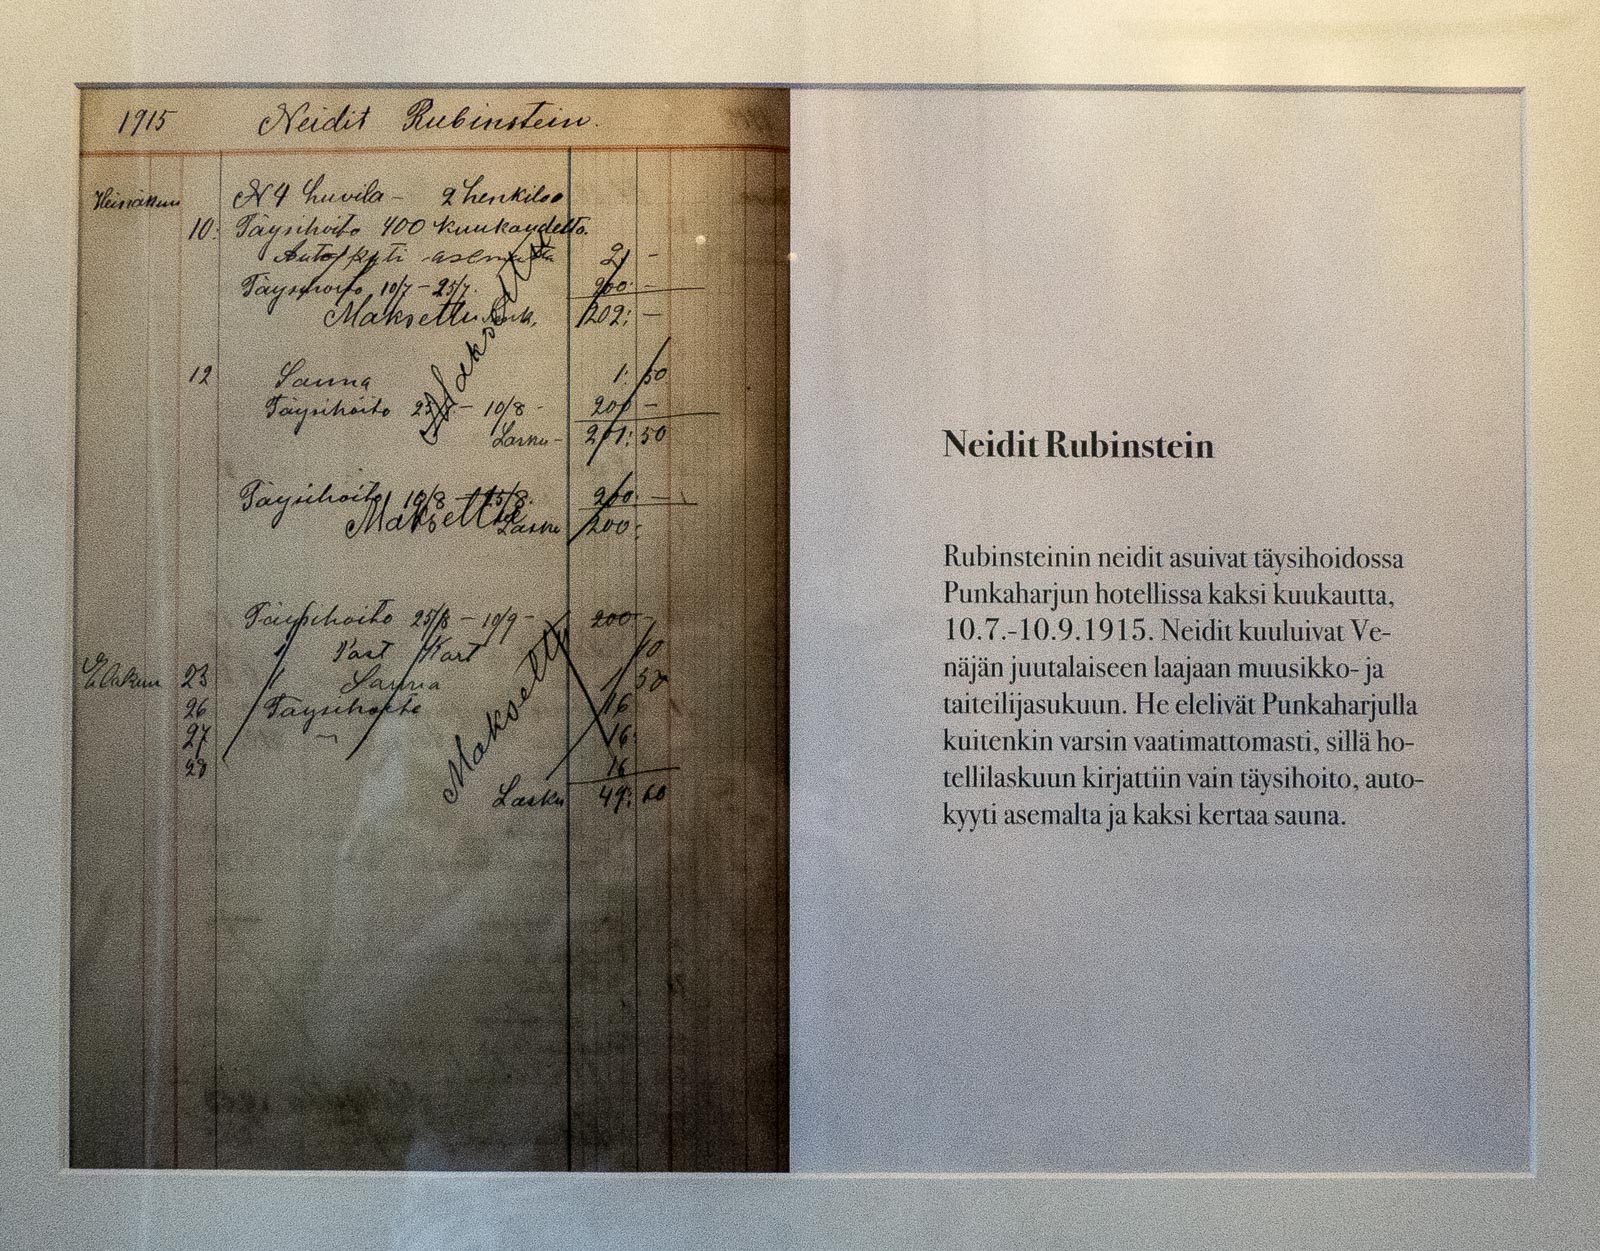 1915 Neidit Rubinstein.
Heinäkuu N 4 huvila - 2 henkilöä
10. Täysihoito 400 kuukaudelta.
Autokyti asemalta 2 -
Täysihoito 10/7 - 25/7. 200: -
Maksettu Lask. 202: -
Maksettu
12 Sauna 1: 50
Täysihoito 25/7 - 10/8 - 200 -
Lasku - 201: 50
Täysihoito 10/8 - 25/8. 200: -
Maksettu Lasku 200:
Täysihoito 25/8 - 10/9 - 200
1 Post Kort 10
Elokuu 23 1 Sauna 1 50
26 Täysihoito 16
27 " 16:
28 16
Maksettu
Lasku 49: 60
Neidit Rubinstein
Rubinsteinin neidit asuivat täysihoidossa
Punkaharjun hotellissa kaksi kuukautta,
10.7.-10.9.1915. Neidit kuuluivat Ve-
näjän juutalaiseen laajaan muusikko- ja
taiteilijasukuun. He elelivät Punkaharjulla
kuitenkin varsin vaatimattomasti, sillä ho-
tellilaskuun kirjattiin vain täysihoito, auto-
kyyti asemalta ja kaksi kertaa sauna.